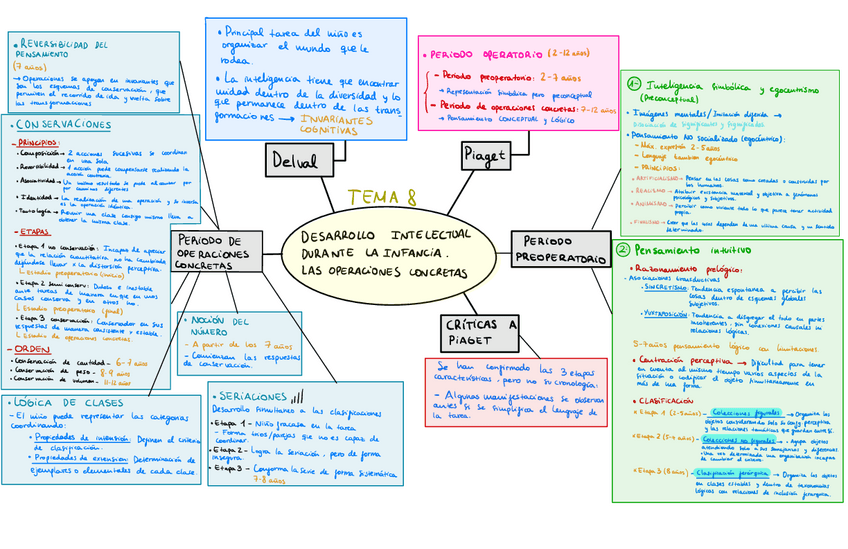 TEMA 8
DESARROLLO INTELECTUAL
DURANTE LA INFANCIA.
LAS OPERACIONES CONCRETAS
Delval
• Principal tarea del niño es
organizar el mundo que le
rodea.
• La inteligencia tiene que encontrar
unidad dentro de la diversidad y lo
que permanece dentro de las trans
formaciones → INVARIANTES
COGNITIVAS
Piaget
• PERIODO OPERATORIO (2-12 años)
- Periodo preoperatorio: 2-7 años
→ Representación simbólica pero preconceptual
- Periodo de operaciones concretas: 7-12 años
→ Pensamiento CONCEPTUAL y LÓGICO
PERIODO
PREOPERATORIO
1- Inteligencia simbólica y egocentrismo
(Preconceptual)
• Imágenes mentales/Imitación diferida →
Diferenciación de significantes y significados
• Pensamiento NO socializado (egocéntrico):
- Máx. expresión 2-5 años
- Lenguaje también egocéntrico
- PRINCIPIOS:
• ARTIFICIALISMO → Pensar en las cosas como creadas o construidas por
los humanos.
• REALISMO → Atribuir existencia material y objetiva a fenómenos
psicológicos y subjetivos.
• ANIMISMO → Percibir como viviente todo lo que pueda tener actividad
propia.
• FINALISMO → Creer que las cosas dependen de una última causa y un sentido
determinado.
2- Pensamiento intuitivo
• Razonamiento prelógico:
- Asociaciones transductivas
• SINCRETISMO: Tendencia espontánea a percibir las
cosas dentro de esquemas globales
subjetivos.
• YUXTAPOSICIÓN: Tendencia a disgregar el todo en partes
incoherentes, sin conexiones causales ni
relaciones lógicas.
5-7 años pensamiento lógico con limitaciones.
• Centración perceptiva → Dificultad para tener
en cuenta al mismo tiempo varios aspectos de la
situación o codificar el objeto simultáneamente en
más de una forma.
• CLASIFICACIÓN
• Etapa 1 (2-5 años) - Colecciones figurales → Organiza los
objetos considerando solo la config. perceptiva
y las relaciones temáticas que guardan entre sí.
• Etapa 2 (5-7 años) - Colecciones no figurales → Agrupa objetos
atendiendo solo a sus semejanzas y diferencias
• Una vez determinada una organización incapaz
de cambiar el criterio.
• Etapa 3 (8 años) - Clasificación jerárquica → Organiza los objetos
en clases estables y dentro de taxonomías
lógicas con relaciones de inclusión jerárquica.
CRÍTICAS A
PIAGET
Se han confirmado las 3 etapas
características, pero no su cronología:
- Algunas manifestaciones se observan
antes si se simplifica el lenguaje de
la tarea.
PERIODO DE
OPERACIONES
CONCRETAS
• REVERSIBILIDAD DEL
PENSAMIENTO
(7 años)
→ Operaciones se apoyan en invariantes que
son los esquemas de conservación, que
permiten el recorrido de ida y vuelta sobre
las transformaciones
• CONSERVACIONES
- PRINCIPIOS:
• Composición → 2 acciones sucesivas se coordinan
en una sola
• Reversibilidad → 1 acción puede compensarse realizando la
acción contraria
• Asociatividad → Un mismo resultado se puede alcanzar por
por caminos diferentes
• Identidad → La realización de una operación y la inversa
es la operación idéntica.
• Tautología → Reunir una clase consigo misma lleva a
obtener la misma clase.
- ETAPAS
• Etapa 1 no conservación: Incapaz de apreciar
que la relación cuantitativa no ha cambiado
dejándose llevar x la distorsión perceptiva.
↳ Estadio preoperatorio (inicio)
• Etapa 2 semi conserv: Dudoso e inestable
ante tareas de manera que en unos
casos conserva y en otros no.
↳ Estadio preoperatorio (final)
• Etapa 3 conservación: Conservador en sus
respuestas de manera consistente y estable.
↳ Estadio de operaciones concretas.
- ORDEN
• Conservación de cantidad - 6-7 años
• Conservación de peso - 8-9 años
• Conservación de volumen - 11-12 años
• NOCIÓN DEL
NÚMERO
- A partir de los 7 años
- Comienzan las respuestas
de conservación.
• LÓGICA DE CLASES
- El niño puede representar las categorías
coordinando:
• Propiedades de intensión: Definen el criterio
de clasificación.
• Propiedades de extensión: Determinación de
ejemplares o elementales de cada clase.
• SERIACIONES
Desarrollo simultáneo a las clasificaciones
• Etapa 1 - Niño fracasa en la tarea
- Forma tríos/parejas que no es capaz de
coordinar.
• Etapa 2 - Logra la seriación, pero de forma
insegura.
• Etapa 3 - Conforma la serie de forma sistemática
7-8 años